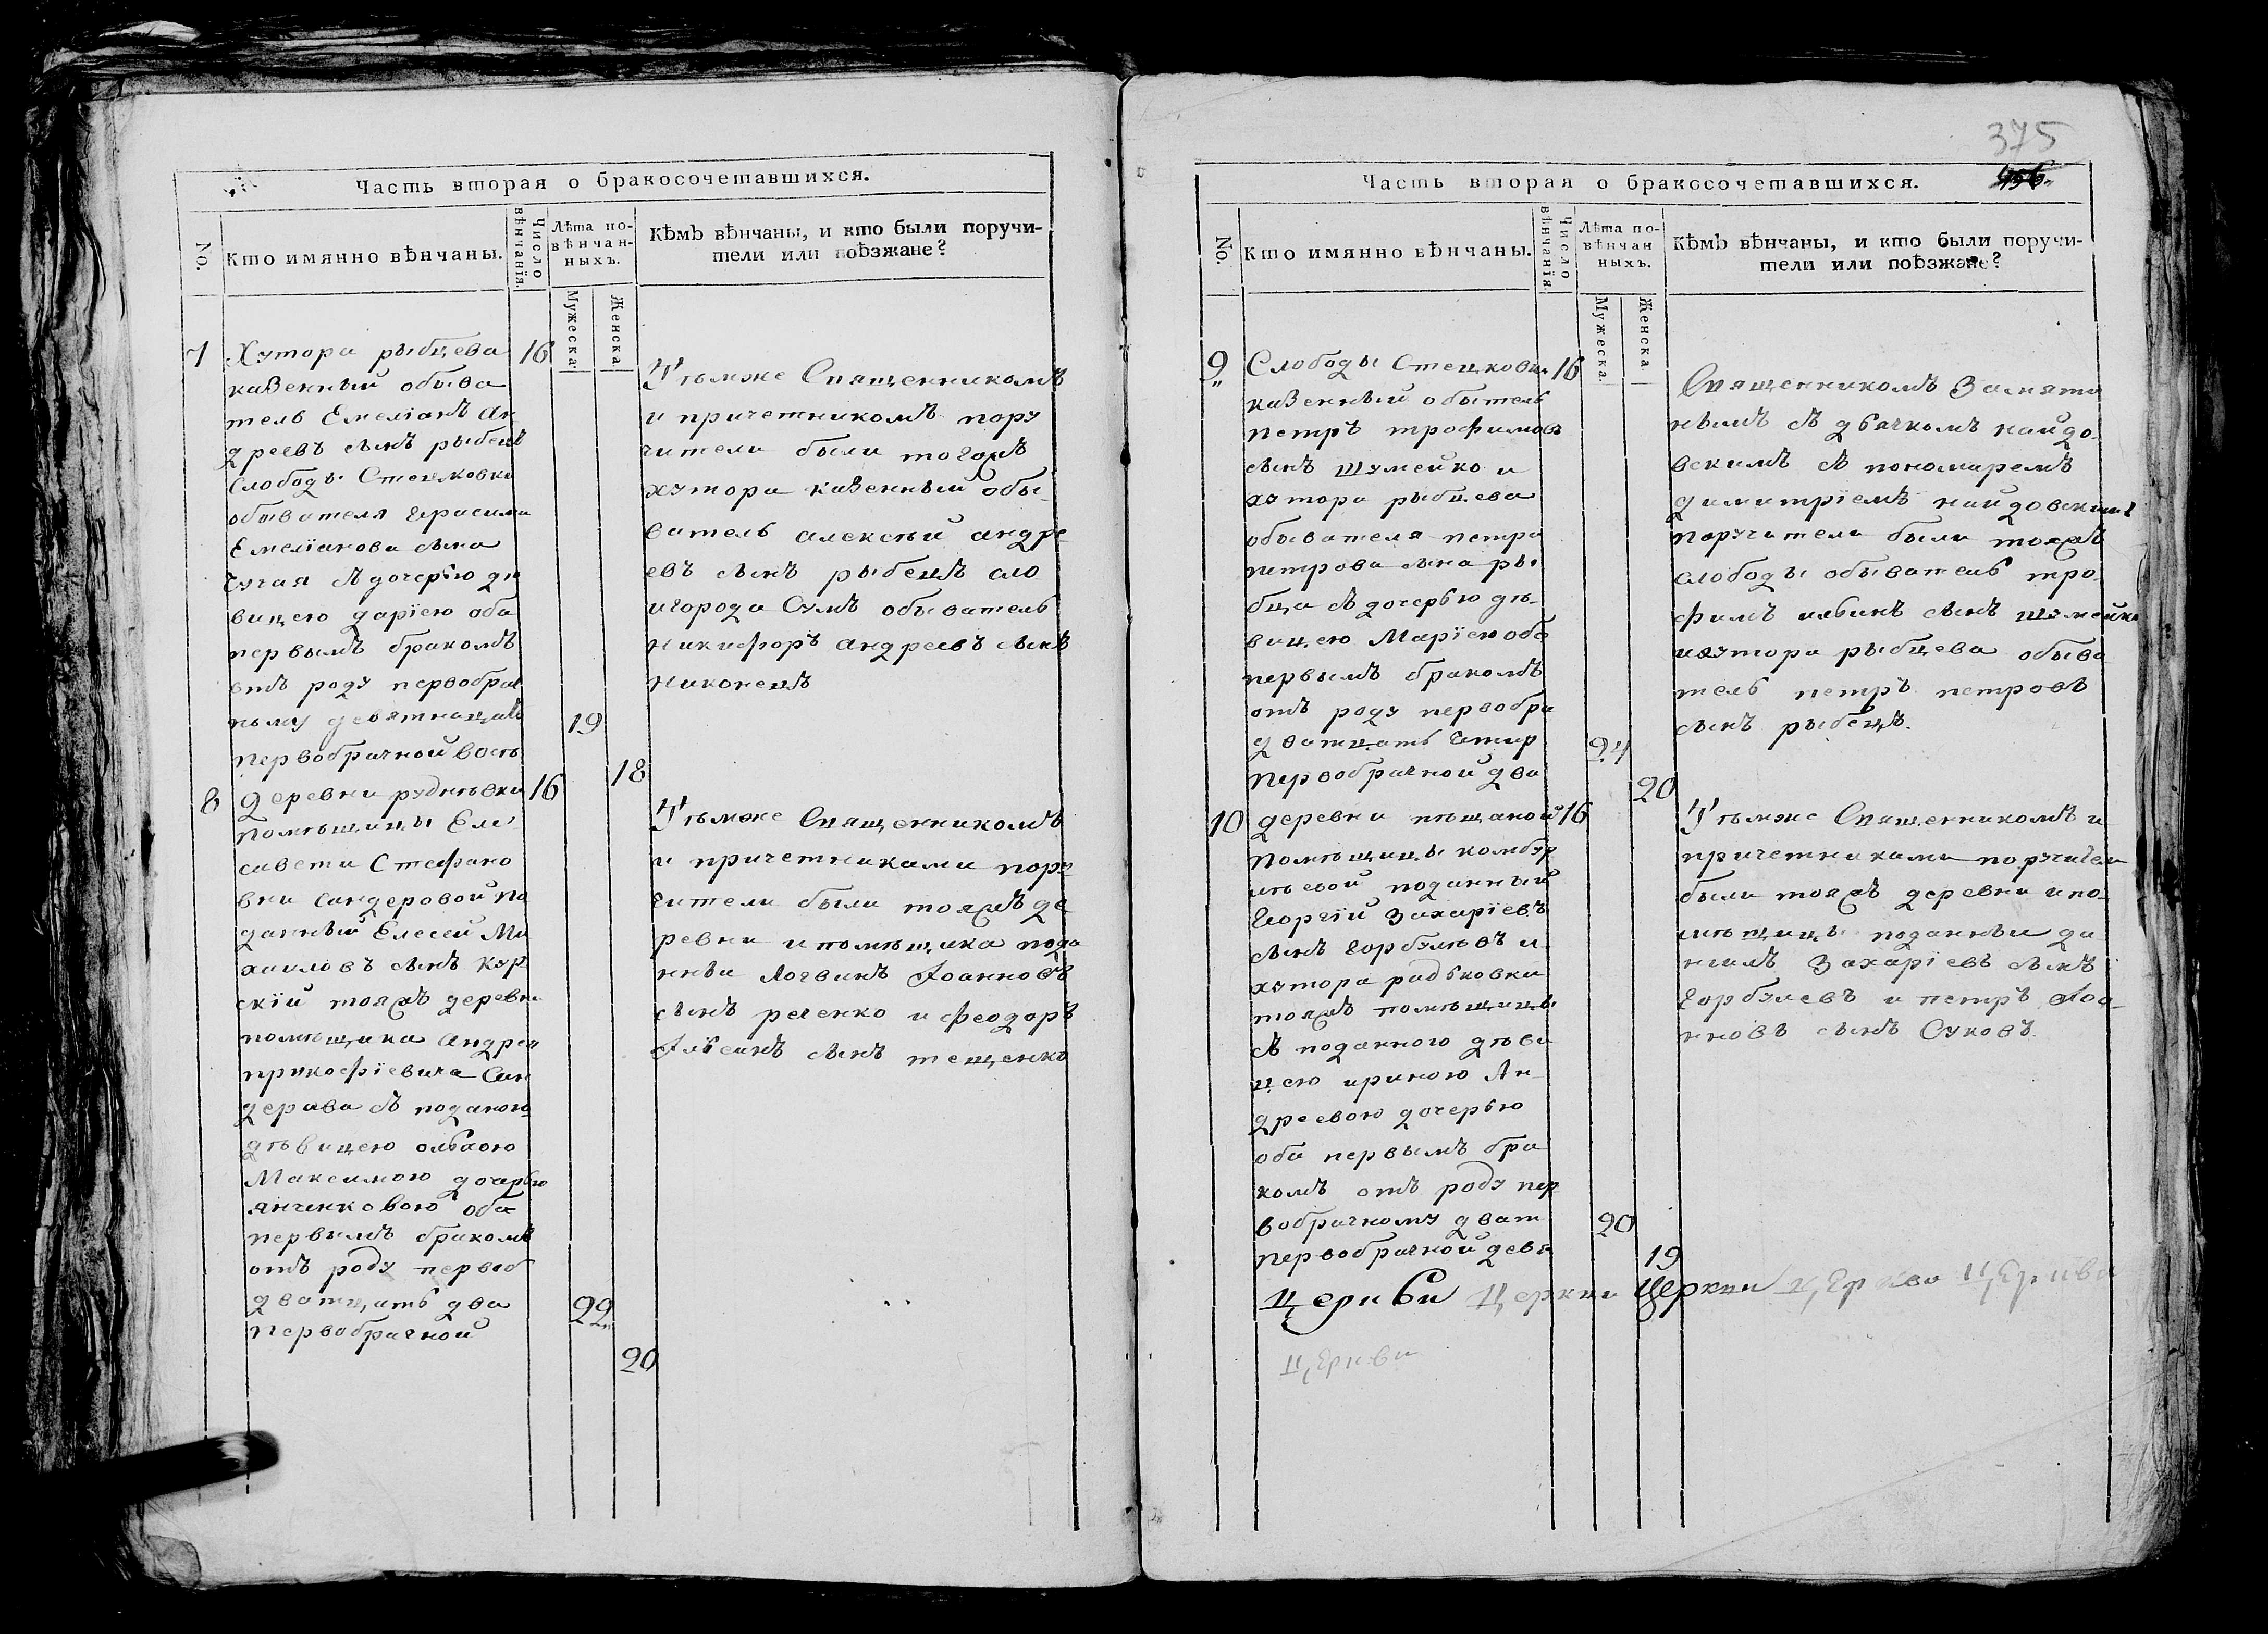 Часть вторая о бракосочетавшихся.
No.
Кто имянно вѣнчаны.
Число вѣнчанія.
Лѣта по-
вѣнчан-
ныхъ.
Мужеска.
Женска.
Кѣмъ вѣнчаны, и кто были поручи-
тели или поѣзжане?
7
Хутора рыбцева
16
казенный обыва
тель Емеліанъ Ан
дреевъ сынъ рыбецъ
Слободы Стецковки
обывателя Герасима
Емеліанова сына
съ дочерїю дѣ
вицею дарїею оба
первымъ бракомъ
отъ роду первобрач
ному девятнацать
19
первобрачной восѣ
18
Тѣмже Священникомъ
и причетникомъ пору
чители были тогожъ
хутора казенный обы-
ватель алексѣй андре
евъ сынъ рыбецъ
игорода Сумъ обыватель
никифоръ андреевъ сынъ
никонецъ
8
деревни руднѣвки
16
помѣщицы Ели
савети Стефано
вни Сандеровой по
данный Елесей Ми
хаиловъ сынъ кур
скїй тояжъ деревни
помѣщика андрея
прокофїевича Сан
дерава съ поданою
дѣвицею олгою
Максимою дочерью
янченковою оба
первымъ бракомъ
отъ роду первоб
дватцать два
22
первобрачной
20
Тѣмже Священникомъ
и причетниками пору
чители были тояжъ де
ревни и помѣщика пода
ннѣи Логвинъ Іоанновъ
сынъ реченко и феодоръ
сынъ тещенко
375
Часть вторая о бракосочетавшихся.
No.
Кто имянно вѣнчаны.
Число вѣнчанія.
Лѣта по-
вѣнчан
ныхъ.
Мужеска.
Женска.
Кѣмъ вѣнчаны, и кто были поручи-
тели или поѣзжане?
9
Слободы Стецковки
16
казенный обытель
петръ трофимовъ
сынъ шумейко и
хутора рыбцева
обывателя петра
петрова сына ры
бца съ дочерью дѣ-
вицею Марїею оба
первымъ бракомъ
отъ роду первобра
дватцать четир
24
первобрачной два
20
Священникомъ
съ дьячкомъ найдо-
вскимъ съ пономаремъ
димитрїемъ найдовскимъ
поручители были тояжъ
слободы обыватель тро
фимъ ильинъ сынъ шумейко
ихутора рыбцева обыва
тель петръ петровъ
сынъ рыбецъ.
10
деревни пѣщаной
16
помѣщицы комбур
лѣевой поданный
Георгїй Захарїевъ
сынъ горбулевъ и
хутора радьковки
тояжъ помѣщицы
съ поданного дѣви
цею ириною Ан-
дреевою дочерью
оба первымъ бра
комъ отъ роду пер
вобрачному дват
20
первобрачной девя
19
Тѣмже Священникомъ и
причетниками поручители
были тояжъ деревни и по-
мѣщицы поданнѣи да
нилъ Захарїевъ сынъ
горбулевъ и петръ Іоа-
нновъ сынъ Суковъ.
Церкви Церкви Церкви Церкви Церкви
Церкви